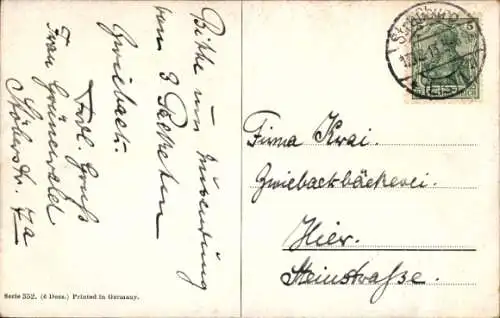 Bitte um Zusendung
von 3 Packeten
Zwieback.
Frdl. Gruß
Frau Grünewald
Str. 7a
Firma Krai.
Zwiebackbäckerei.
Hier.
Steinstraße.
Straßburg
(Els.)
5
Serie 352. (6 Dess.) Printed in Germany.